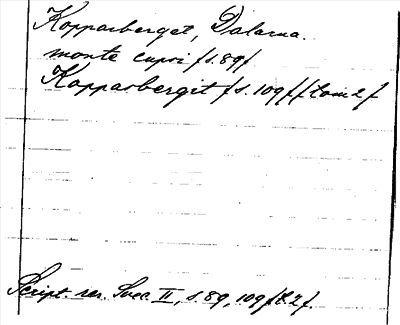 Kopparberget, Dalarna.
monte cupri /s. 89/
Kopparbergit /s. 109/ /tom 2/
Script. rer. Svec. II, s. 89, 109 /s. 2/.